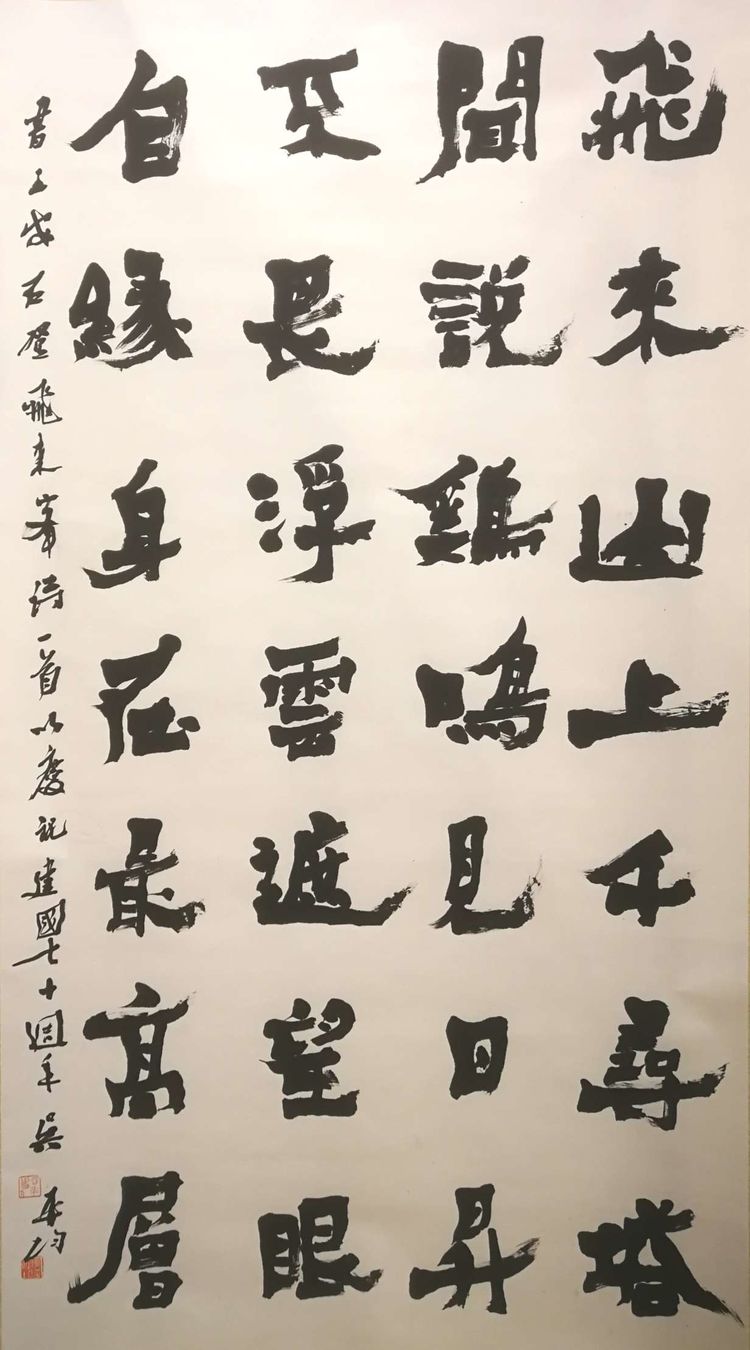 飛來山上千尋塔
聞說鷄鳴見日昇
不畏浮雲遮望眼
自緣身在最高層
書王安石登飛來峯詩一首以慶祝建國七十週年吳